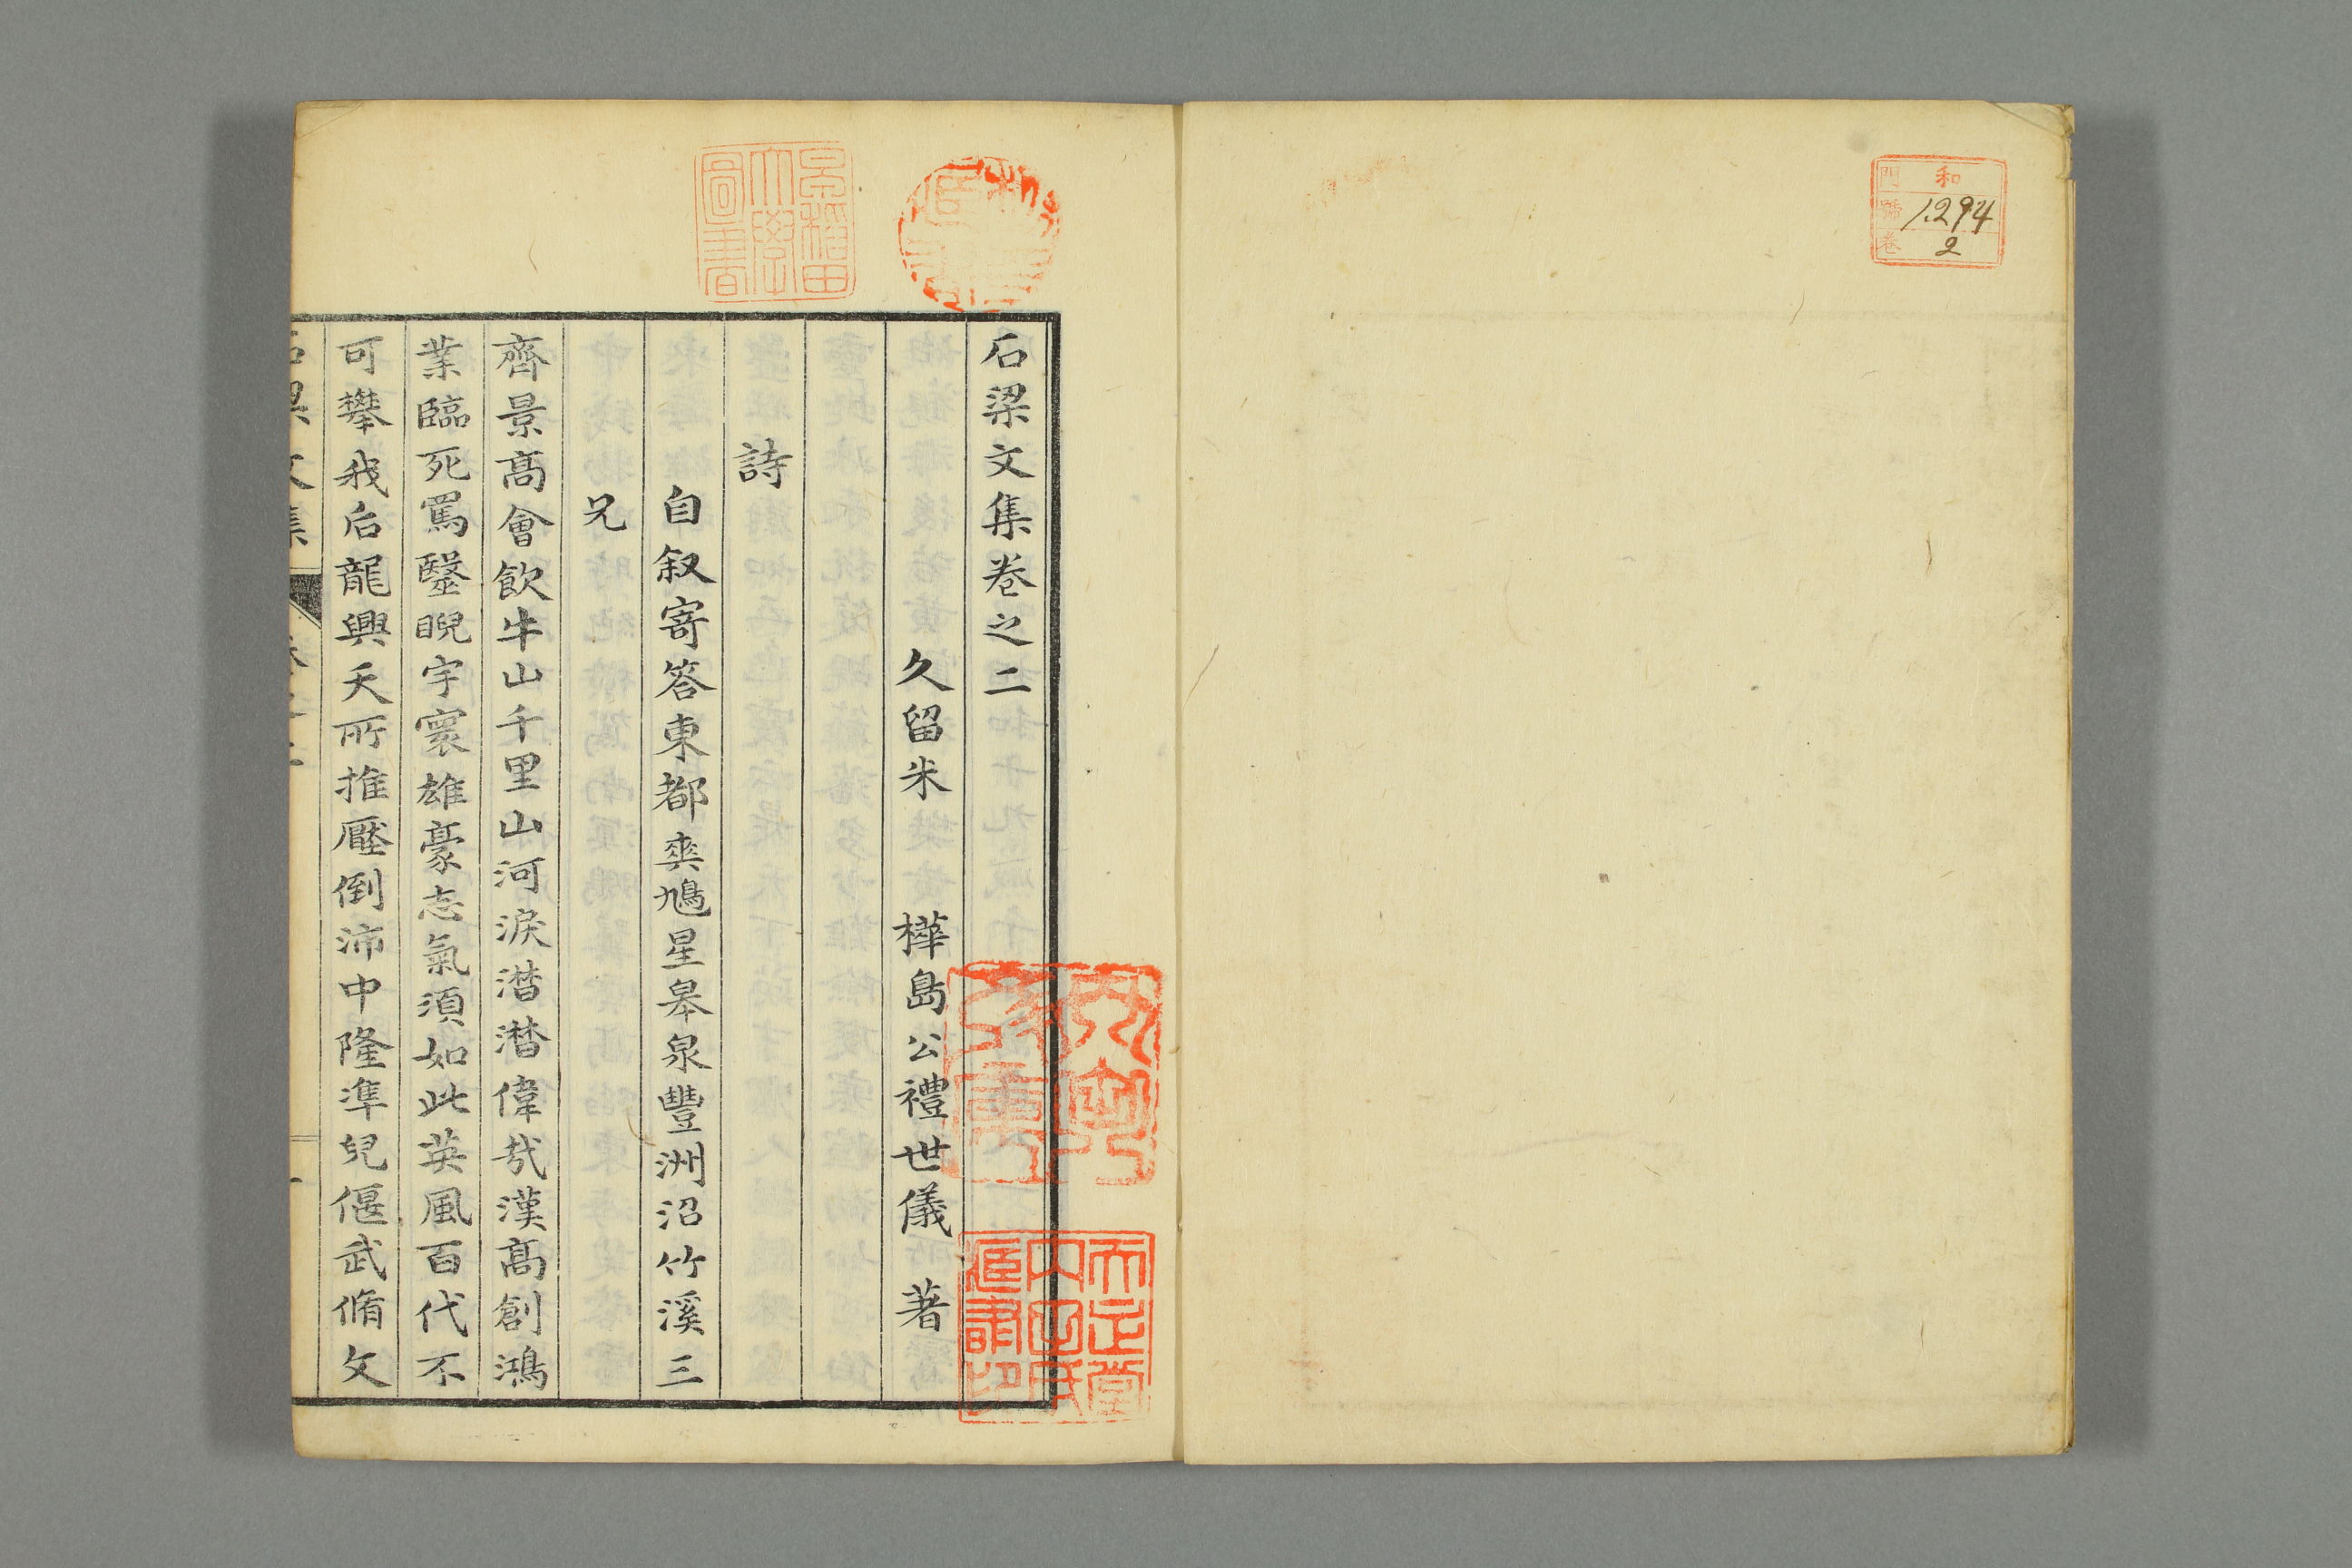 和
門
號
卷
1294
2
早稲田
大學
圖書
石梁文集卷之二
久留米 樺島公禮世儀 著
詩
自叙寄答東都奭鳩星皋泉豐洲沼竹溪三
兄
齊景高會飲牛山千里山河淚潸潸偉哉漢高創鴻
業臨死罵毉睨宇寰雄豪志氣須如此英風百代不
可攀我后龍興天所推壓倒沛中隆準兒偃武脩文